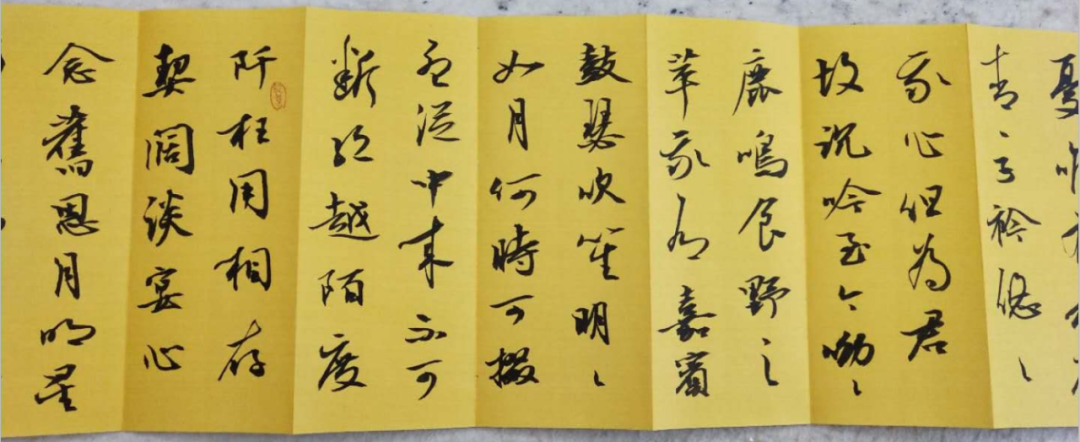 憂
青〻子衿悠〻
我心但為君
故沉吟至今呦〻
鹿鳴食野之
苹我有嘉賓
鼓瑟吹笙明〻
如月何時可掇
憂從中來不可
斷絕越陌度
阡枉用相存
契闊談宴心
念舊恩月明星